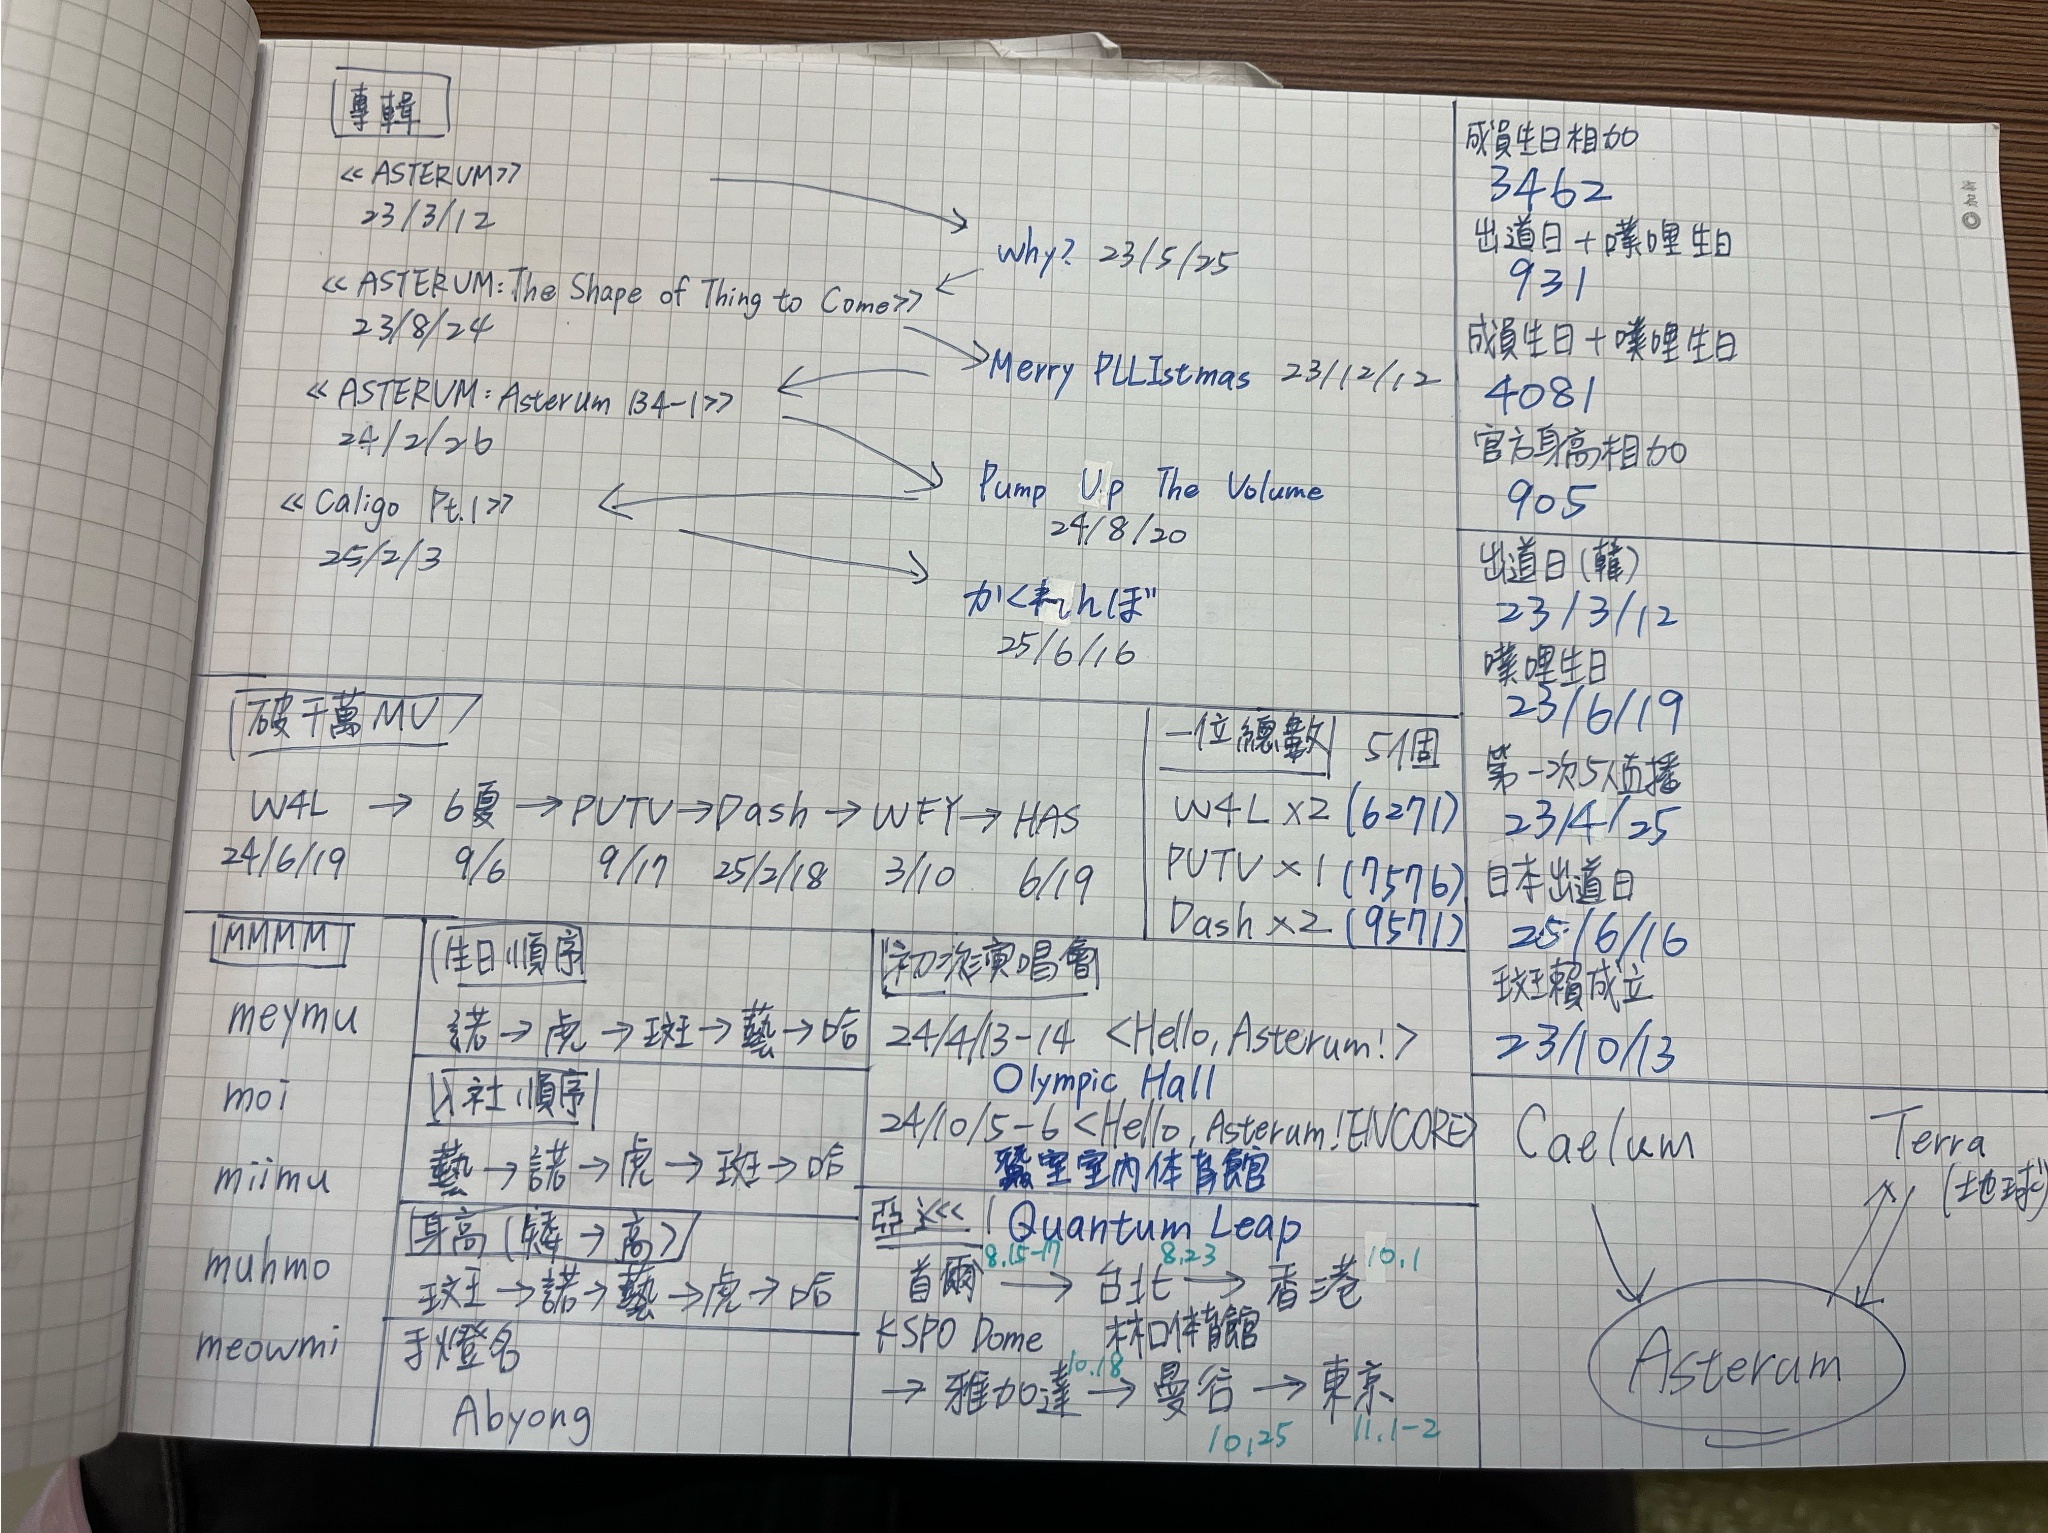 專輯
《ASTERUM》
23/3/12
Why? 23/5/25
《ASTERUM:The Shape of Thing to Come》
23/8/24
Merry PLLIstmas 23/12/12
《ASTERUM:Asterum 134-1》
24/2/26
Pump Up The Volume
24/8/20
《Caligo Pt.1》
25/2/3
かくれんぼ
25/6/16
破千萬MV
W4L → 6夏 → PUTV → Dash → WFY → HAS
24/6/19 9/6 9/17 25/2/18 3/10 6/19
一位總數 5個
W4L x2 (6271)
PUTV x1 (7576)
Dash x2 (9571)
MMMM
meymu
moi
miimu
muhmo
meowmi
生日順序
諾→虎→斑→藝→哈
入社順序
藝→諾→虎→斑→哈
身高(矮→高)
斑→諾→藝→虎→哈
手燈名
Abyong
初次演唱會
24/4/13-14 <Hello, Asterum!>
Olympic Hall
24/10/5-6 <Hello, Asterum! ENCORE>
蠶室室內体育館
亞巡 Quantum Leap
首爾 8.15-17 → 台北 8.23 → 香港 10.1
KSPO Dome 林口体育館
→ 雅加達 10.18 → 曼谷 → 東京
10.25 11.1-2
成員生日相加
3462
出道日+噗哩生日
931
成員生日+噗哩生日
4081
官方身高相加
905
出道日(韓)
23/3/12
噗哩生日
23/6/19
第一次5人直播
23/4/25
日本出道日
25/6/16
斑賴成立
23/10/13
Caelum Terra
(地球)
Asterum